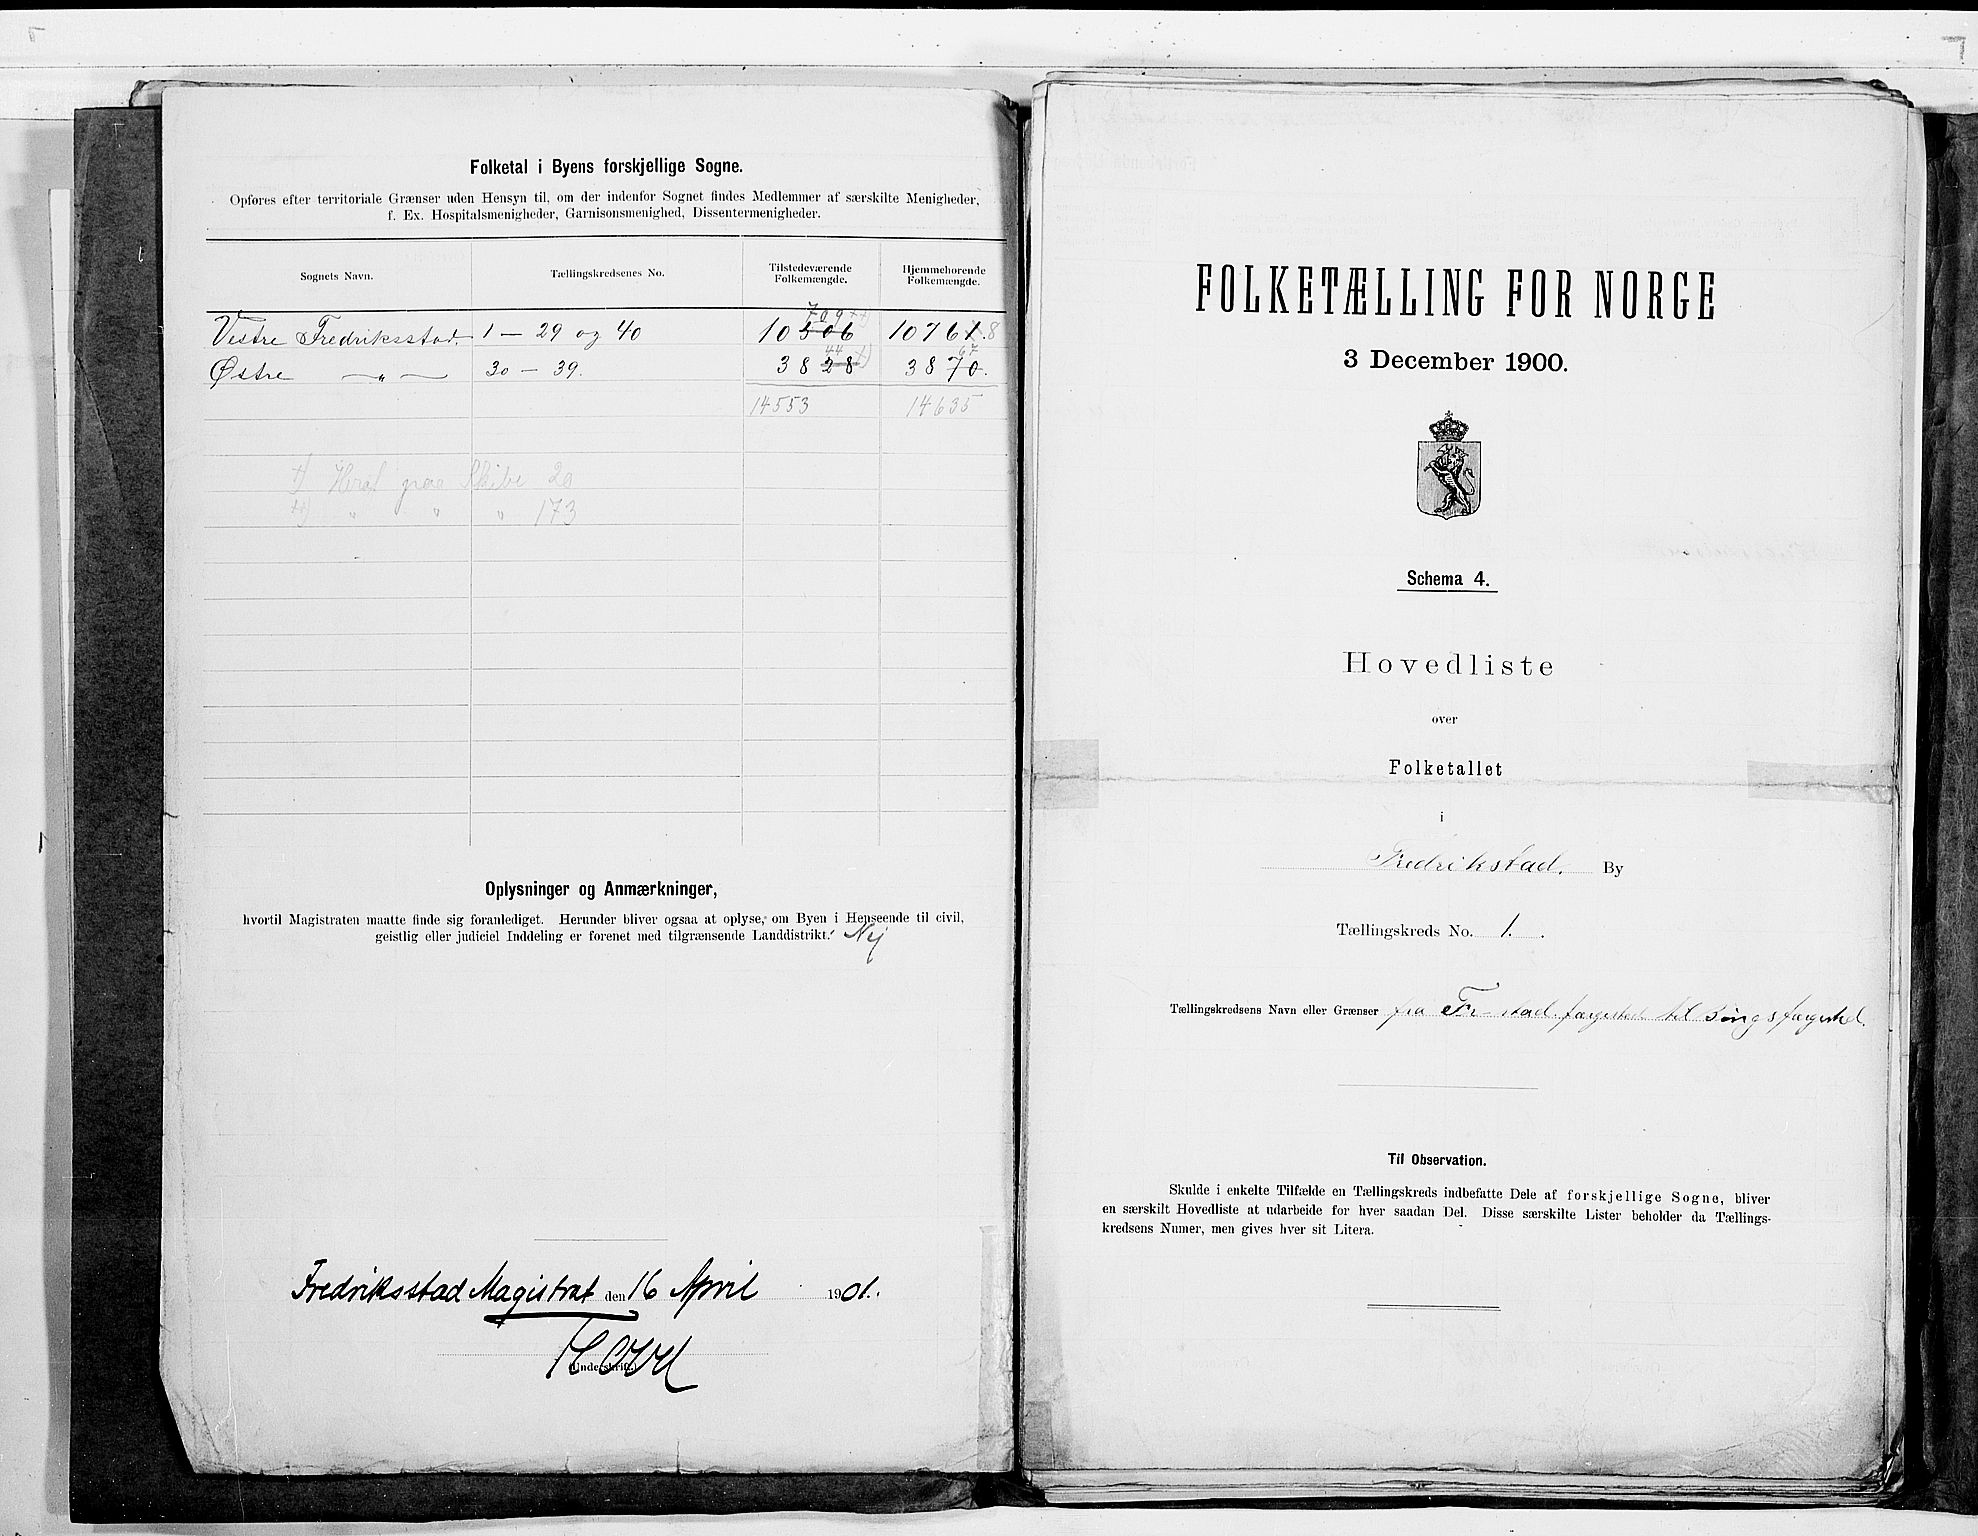 Folketal i Byens forskjellige Sogne.
Opføres efter territoriale Grænser uden Hensyn til, om der indenfor Sognet findes Medlemmer af særskilte Menigheder,
f. Ex. Hospitalsmenigheder, Garnisonsmenighed, Dissentermenigheder.
Sognets Navn. Tællingskredsenes No. Tilstedeværende Folkemængde. Hjemmehørende Folkemængde.
709 ++)
Vestre Fredriksstad. 1 — 29 og 40 10506 10761.8
44 +) 67
Østre — „ — 30 — 39. 3828 3870.
14553 14635
+) paa Skibe 20
++) " " " 173
Oplysninger og Anmærkninger,
hvortil Magistraten maatte finde sig foranlediget. Herunder bliver ogsaa at oplyse, om Byen i Henseende til civil,
geistlig eller judiciel Inddeling er forenet med tilgrænsende Landdistrikt. Nej
Fredriksstad Magistrat den 16 April 1901.
(Underskrift.)
FOLKETÆLLING FOR NORGE
3 December 1900.
Schema 4.
Hovedliste
over
Folketallet
i
Fredrikstad. By
Tællingskreds No. 1.
Tællingskredsens Navn eller Grænser fra Fr-stad færgested til
Til Observation.
Skulde i enkelte Tilfælde en Tællingskreds indbefatte Dele af forskjellige Sogne, bliver
en særskilt Hovedliste at udarbeide for hver saadan Del. Disse særskilte Lister beholder da Tællings-
kredsens Numer, men gives hver sit Litera.